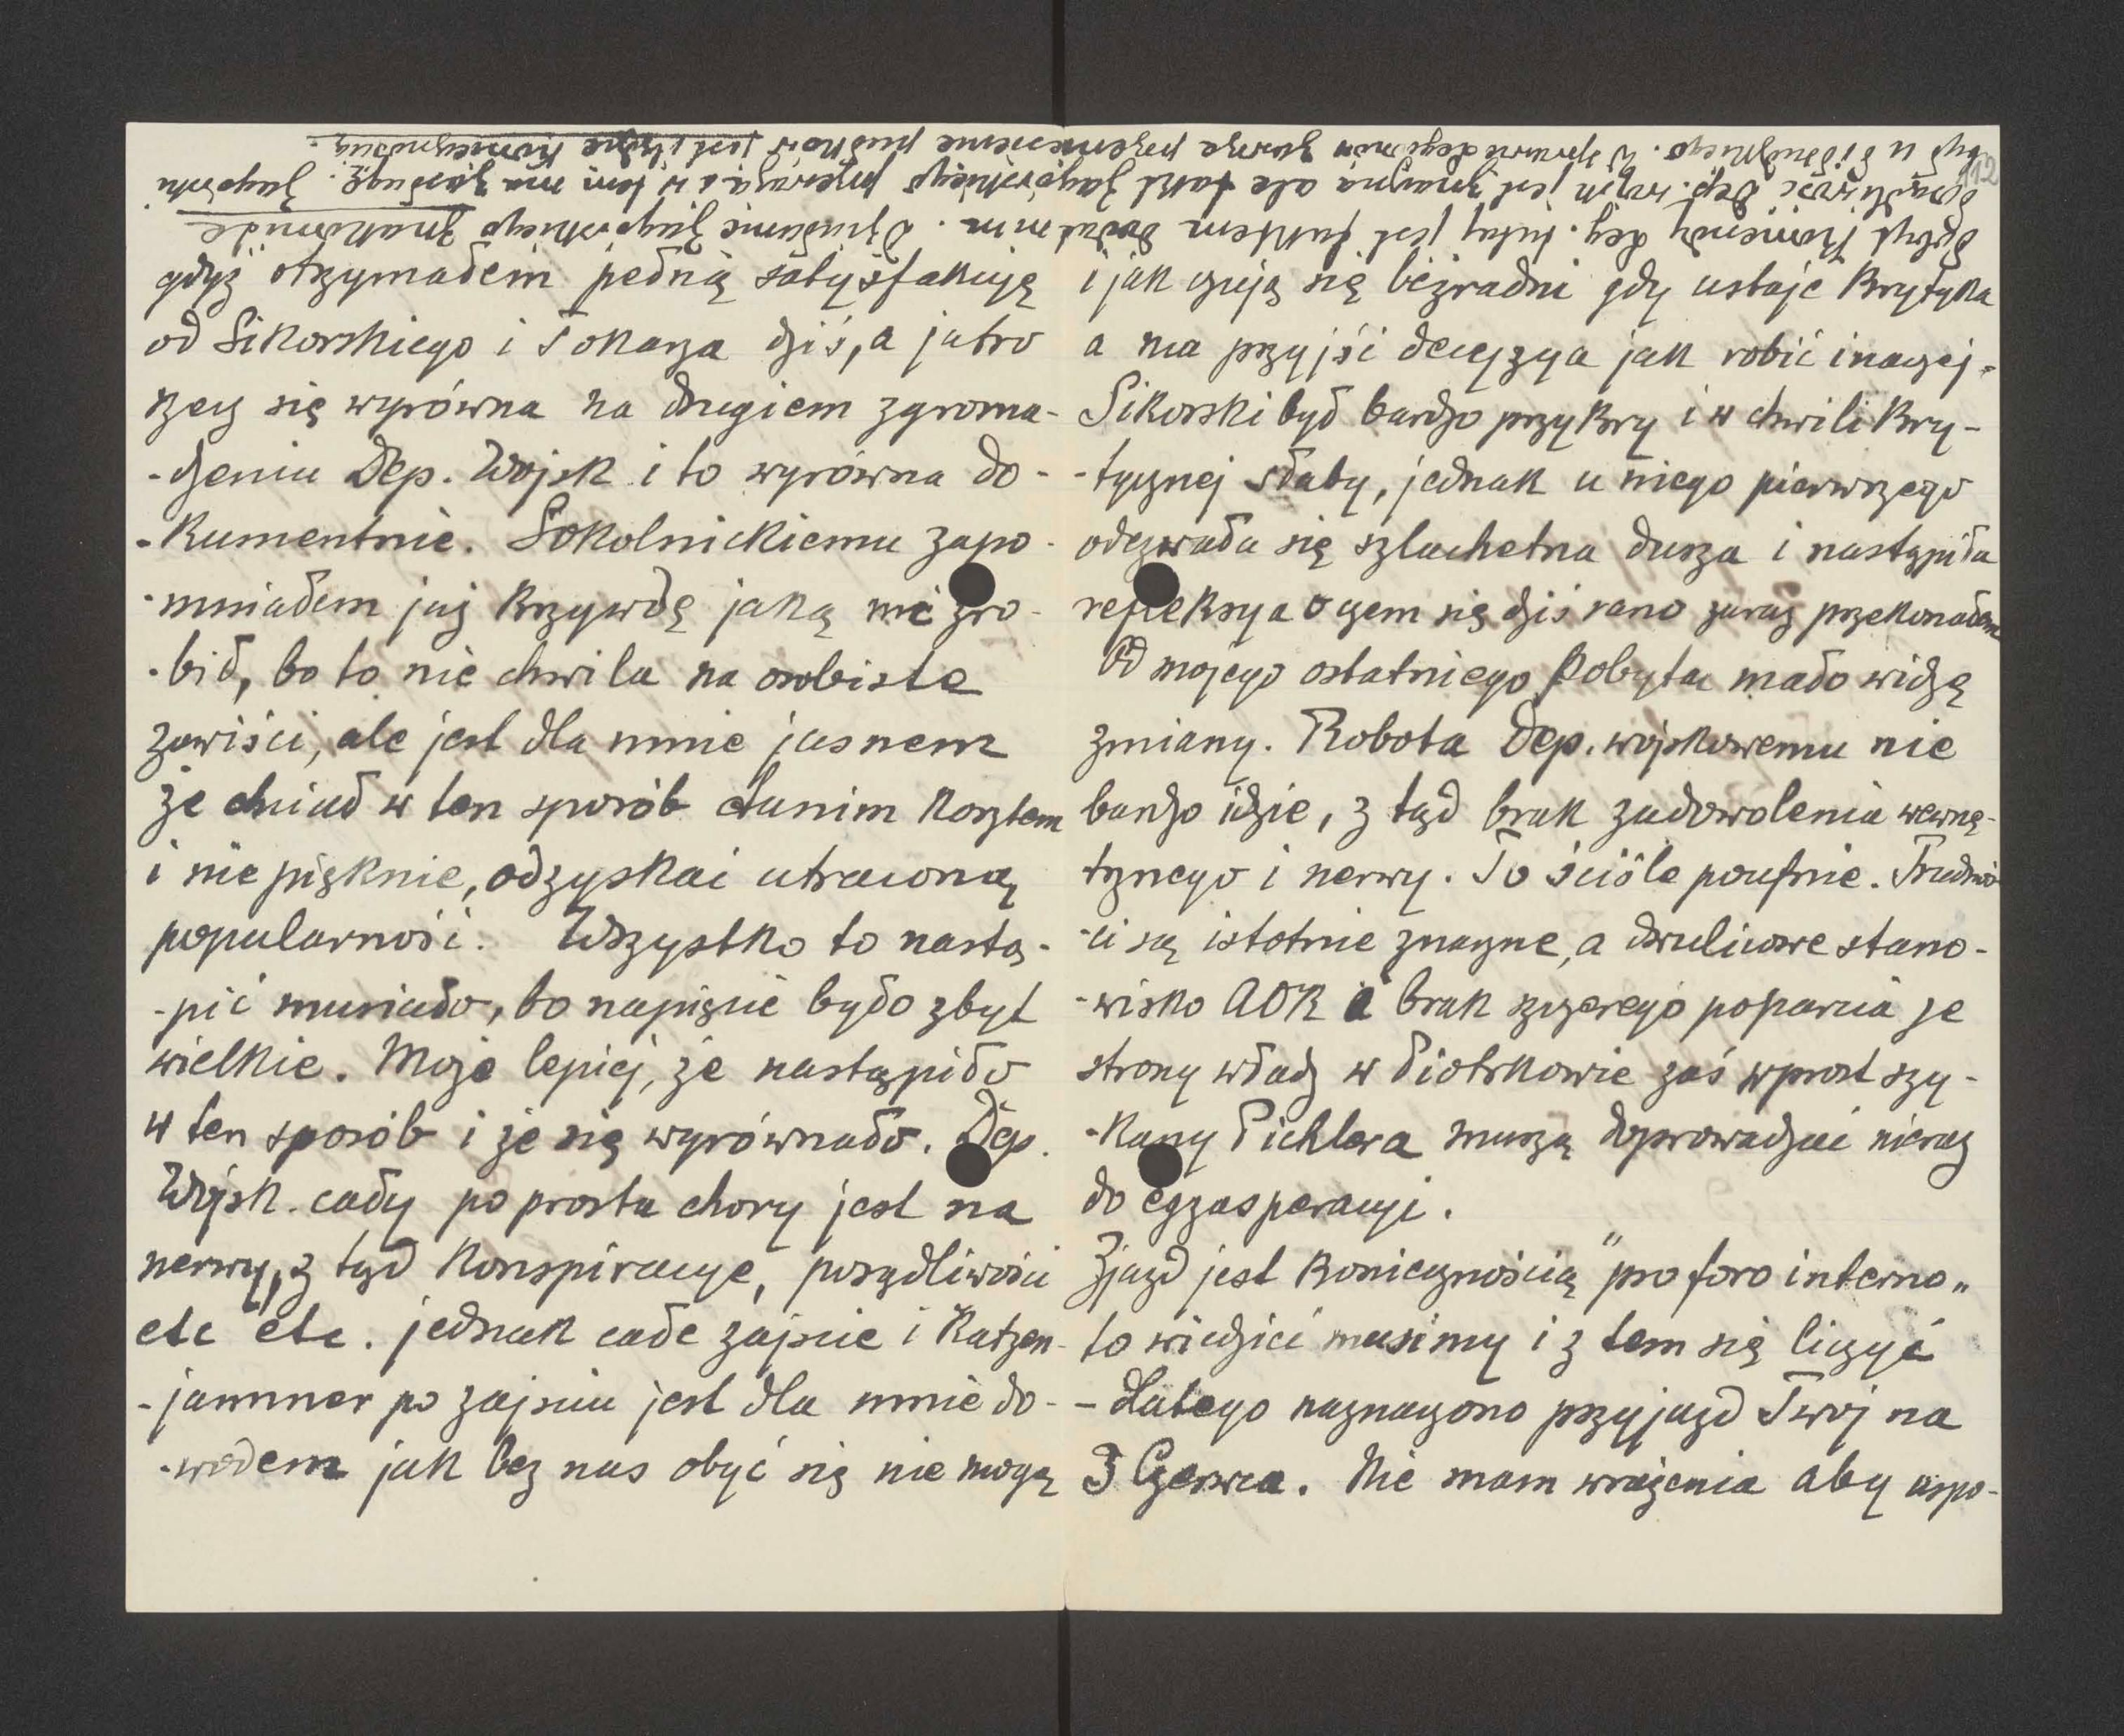 112
gdyż otrzymałem pełną satysfakcję
od Sikorskiego i Tokarza dziś, a jutro
rzecz się wyrówna na drugiem zgroma-
-dzeniu Dep. Wojsk i to wyrówna do-
-kumentnie. Sokolnickiemu zapo-
-mniałem już krzywdę jaką mi zro-
-bił, bo to nie chwila na osobiste
zawiści, ale jest dla mnie jasnem
że chciał w ten sposób tanim kosztem
i nie pięknie, odzyskać utraconą
popularność. Wszystko to nastą-
-pić musiało, bo napięcie było zbyt
wielkie. Może lepiej, że nastąpiło
w ten sposób i że się wyrównało. Dep.
Wojsk. cały po prostu chory jest na
nerwy, z tąd konspiracye, posądliwości
etc etc. jednak całe zajście i Katzen-
-jammer po zajściu jest dla mnie do-
-wodem jak bez nas obyć się nie mogą
i jak czują się bezradni gdy ustaje krytyka
a ma przyjść decyzya jak robić inaczej.
Sikorski był bardzo przykry i w chwili kry-
-tycznej słaby, jednak u niego pierwszego
odezwała się szlachetna dusza i nastąpiła
refleksya o czem się dziś rano zaraz przekonałem
Od mojego ostatniego pobytu mało widzę
zmiany. Robota Dep. wojskowemu nie
bardzo idzie, z tąd brak zadowolenia wewnę-
trznego i nerwy. To ściśle poufnie. Trudnoś-
-ci są istotnie znaczne, a dwulicowe stano-
-wisko AOK i brak szczerego poparcia ze
strony władz w Piotrkowie zaś wprost szy-
-kany Pichlera muszą doprowadzać nieraz
do egzasperacyi.
Zjazd jest koniecznością "pro foro interno"
to wiedzieć musimy i z tem się liczyć
- dlatego naznaczono przyjazd Twój na
3 Czerwca. Nie mam wrażenia aby uspo-
zbyt Komendy Leg. tutaj jest faktem dodatnim. Działanie Jagórskiego znakomite
Wojsk jest znaczna ale takt Jagórskiego przeważa i w tem ma zasługę.
był u Sądeckiego. W sprawie Legionów zawsze przeniesienie pułków jest i będzie koniecznością.